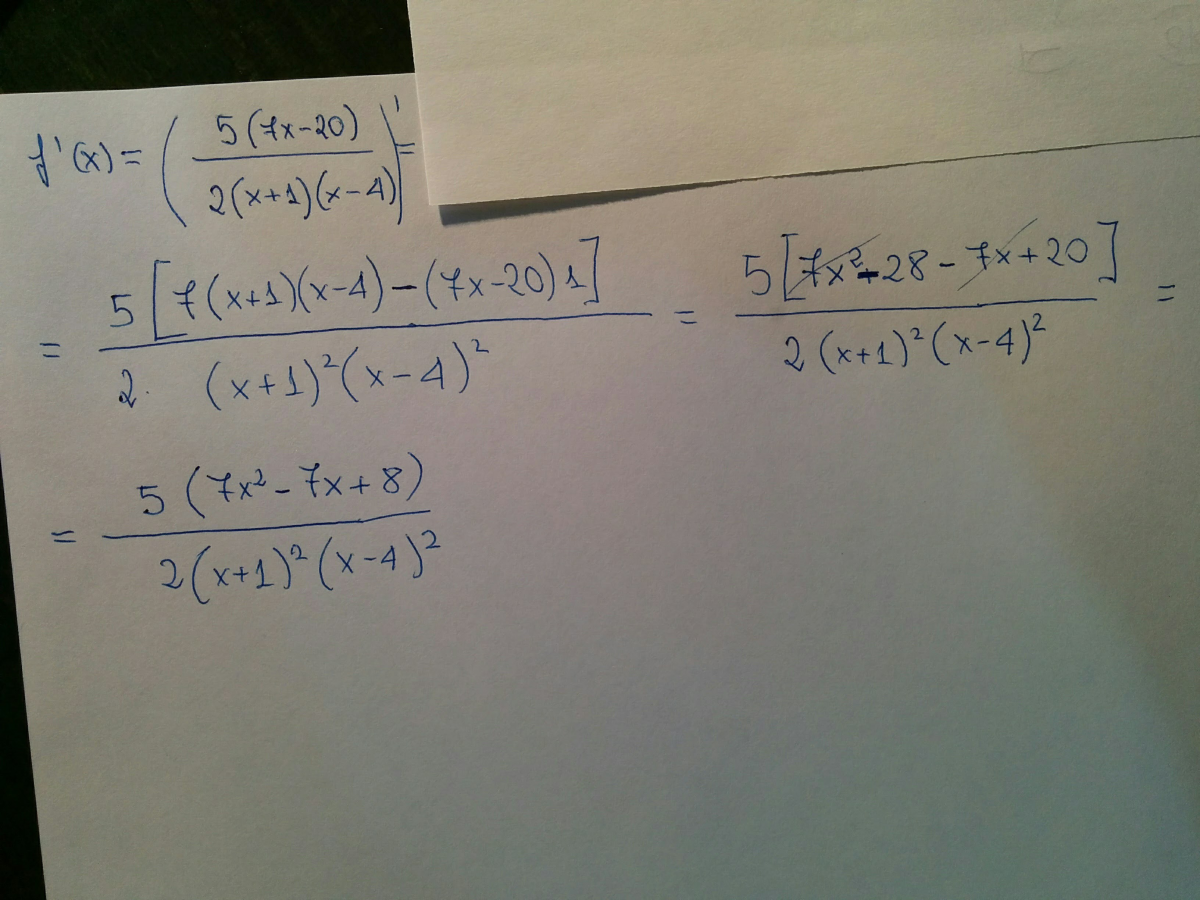 f'(x) = ( 5(7x-20) / 2(x+1)(x-4) )' =
= 5[7(x+1)(x-4)-(7x-20)1] / 2. (x+1)²(x-4)² = 5[7x²-28-7x+20] / 2(x+1)²(x-4)² =
= 5(7x²-7x+8) / 2(x+1)²(x-4)²